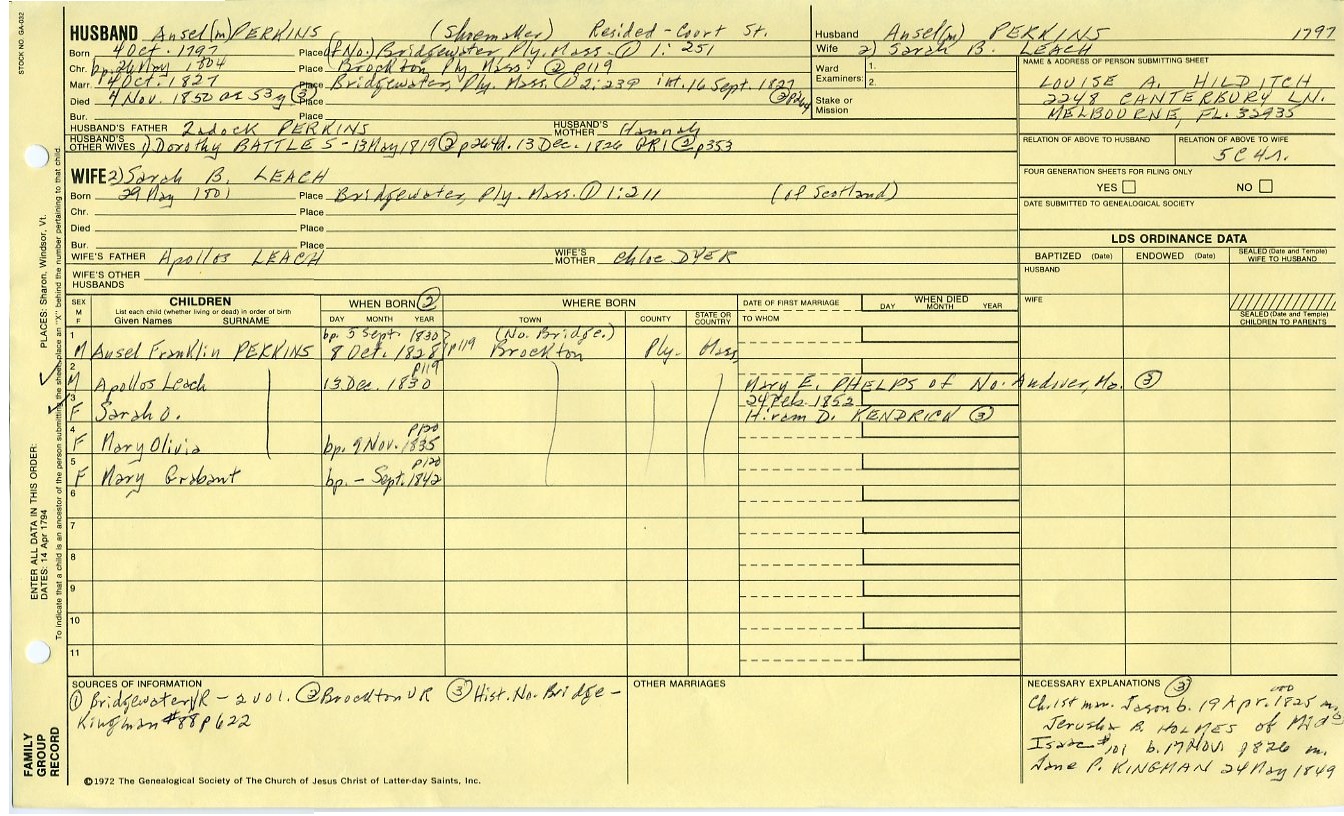 STOCK NO. GA-032
HUSBAND Ansel(m) PERKINS (Shoemaker) Resided - Court St.
Born 4 Oct. 1797 Place (of No.) Bridgewater Ply. Mass. ① 1:251
Chr. bp. 26 May 1804 Place Brockton Ply. Mass. ② p119
Marr. 14 Oct. 1827 Place Bridgewater, Ply. Mass. ① 2:239 int. 16 Sept. 1827
Died 4 Nov. 1850 as 53 y ③ Place ② p264
Bur. Place
HUSBAND'S FATHER Zadock PERKINS HUSBAND'S MOTHER Hannah
HUSBAND'S OTHER WIVES 1) Dorothy BATTLES - 13 May 1819 ② p264 d. 13 Dec. 1826 GR1 ② p353
Husband Ansel(m) PERKINS 1797
Wife 2) Sarah B. LEACH
Ward Examiners: 1.
2.
Stake or Mission
NAME & ADDRESS OF PERSON SUBMITTING SHEET
LOUISE A. HILDITCH
2248 CANTERBURY LN.
MELBOURNE, FL. 32935
RELATION OF ABOVE TO HUSBAND RELATION OF ABOVE TO WIFE
5C4r.
FOUR GENERATION SHEETS FOR FILING ONLY
YES NO
DATE SUBMITTED TO GENEALOGICAL SOCIETY
WIFE 2) Sarah B. LEACH
Born 29 May 1801 Place Bridgewater, Ply. Mass. ① 1:211 (of Scotland)
Chr. Place
Died Place
Bur. Place
WIFE'S FATHER Apollos LEACH WIFE'S MOTHER Chloe DYER
WIFE'S OTHER HUSBANDS
LDS ORDINANCE DATA
BAPTIZED (Date) ENDOWED (Date) SEALED (Date and Temple) WIFE TO HUSBAND
HUSBAND
WIFE
SEALED (Date and Temple) CHILDREN TO PARENTS
SEX M F CHILDREN WHEN BORN ② WHERE BORN DATE OF FIRST MARRIAGE WHEN DIED
List each child (whether living or dead) in order of birth
Given Names SURNAME DAY MONTH YEAR TOWN COUNTY STATE OR COUNTRY TO WHOM DAY MONTH YEAR
1 bp. 5 Sept. 1830 (No. Bridge.)
M Ansel Franklin PERKINS 8 Oct. 1828 p119 Brockton Ply. Mass.
2 p119
M Apollos Leach 13 Dec. 1830 Mary E. PHELPS of No. Andover, Ma. ③
3 24 Feb. 1852
F Sarah O. Hiram D. KENDRICK ③
4 p120
F Mary Olivia bp. 9 Nov. 1835
5 p120
F Mary Grabant bp. - Sept. 1842
6
7
8
9
10
11
SOURCES OF INFORMATION
① Bridgewater VR - 2 vol. ② Brockton VR ③ Hist. No. Bridge -
Kingman #88 p622
OTHER MARRIAGES
NECESSARY EXPLANATIONS ③
Ch. 1st marr. Jason b. 19 Apr. 1825 m.
Jerusha B. HOLMES of Mid
Isaac #101 b. 17 Nov. 1826 m.
Jane P. KINGMAN 24 May 1849
©1972 The Genealogical Society of The Church of Jesus Christ of Latter-day Saints, Inc.
FAMILY GROUP RECORD
ENTER ALL DATA IN THIS ORDER:
DATES: 14 Apr 1794
PLACES: Sharon, Windsor, Vt.
To indicate that a child is an ancestor of the person submitting the sheet, place an "X" behind the number pertaining to that child.